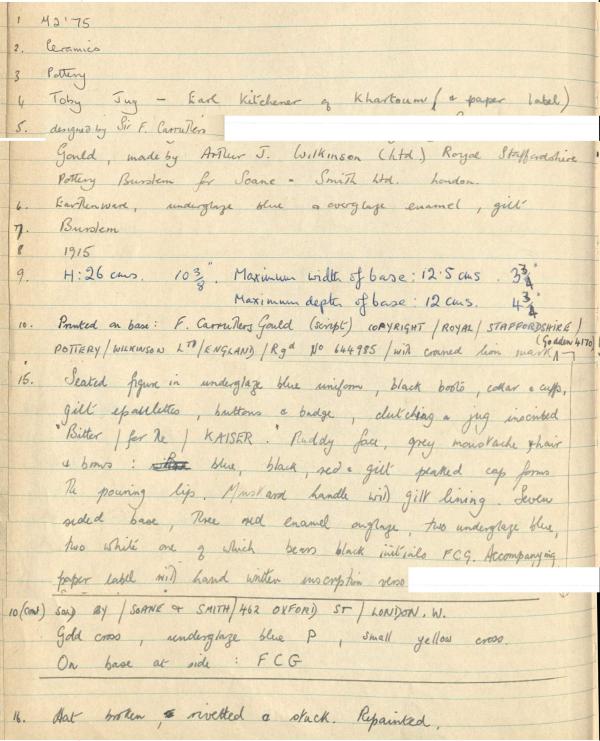 1 M2'75
2. Ceramics
3 Pottery
4 Toby Jug - Earl Kitchener of Khartoum (& paper label)
5. designed by Sir F. Carruthers
Gould, made by Arthur J. Wilkinson (Ltd.) Royal Staffordshire
Pottery Burslem for Soane & Smith Ltd. London.
6. Earthenware, underglaze blue & overglaze enamel, gilt
7. Burslem
8 1915
9. H: 26 cms. 10 3/8". Maximum width of base: 12.5 cms. 3 3/4"
Maximum depth of base: 12 cms. 4 3/4"
10. Printed on base: F. Carruthers Gould (script) COPYRIGHT / ROYAL / STAFFORDSHIRE /
(Godden 4170)
POTTERY / WILKINSON LTD / ENGLAND / Rgd No 644985 / with crowned lion mark
15. Seated figure in underglaze blue uniform, black boots, collar & cuffs,
gilt epaulettes, buttons & badge, clutching a jug inscribed
"Bitter / for the / KAISER." Ruddy face, grey moustache & hair
& brows: blue, black, red & gilt peaked cap forms
the pouring lip. Mustard handle with gilt lining. Seven
sided base, three red enamel onglaze, two underglaze blue,
two white one of which bears black initials FCG. Accompanying
paper label with hand written inscription verso
10 (cont) SOLD BY / SOANE & SMITH / 462 OXFORD ST / LONDON. W.
Gold cross, underglaze blue P, small yellow cross.
On base at side: FCG
16. Hat broken, rivetted & stuck. Repainted.